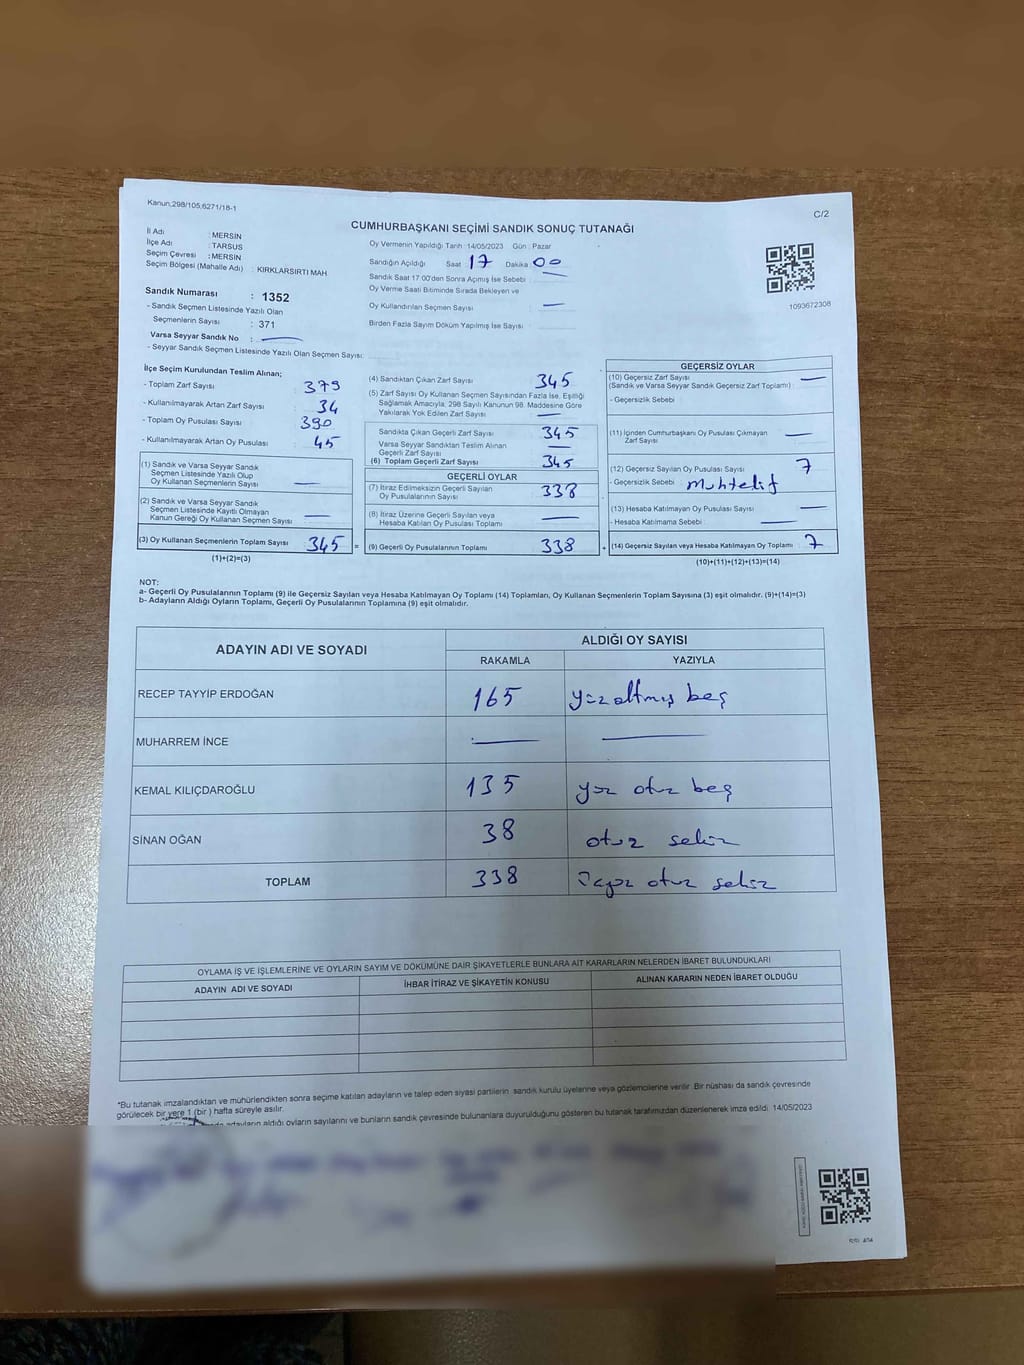 Kanun;298/105,6271/18-1
C/2
CUMHURBAŞKANI SEÇİMİ SANDIK SONUÇ TUTANAĞI
İl Adı : MERSİN
İlçe Adı : TARSUS
Seçim Çevresi : MERSİN
Seçim Bölgesi (Mahalle Adı) : KIRKLARSIRTI MAH
Sandık Numarası : 1352
- Sandık Seçmen Listesinde Yazılı Olan
Seçmenlerin Sayısı : 371
Varsa Seyyar Sandık No : —
- Seyyar Sandık Seçmen Listesinde Yazılı Olan Seçmen Sayısı:
Oy Vermenin Yapıldığı Tarih :14/05/2023 Gün : Pazar
Sandığın Açıldığı Saat 17 Dakika: 00
Sandık Saat 17:00'den Sonra Açmış İse Sebebi : —
Oy Verme Saati Bitiminde Sırada Bekleyen ve
Oy Kullandırılan Seçmen Sayısı : —
Birden Fazla Sayım Döküm Yapılmış İse Sayısı :
1093672308
İlçe Seçim Kurulundan Teslim Alınan;
- Toplam Zarf Sayısı : 379
- Kullanılmayarak Artan Zarf Sayısı : 34
- Toplam Oy Pusulası Sayısı : 390
- Kullanılmayarak Artan Oy Pusulası : 45
(1) Sandık ve Varsa Seyyar Sandık
Seçmen Listesinde Yazılı Olup
Oy Kullanan Seçmenlerin Sayısı : —
(2) Sandık ve Varsa Seyyar Sandık
Seçmen Listesinde Kayıtlı Olmayan
Kanun Gereği Oy Kullanan Seçmen Sayısı : —
(3) Oy Kullanan Seçmenlerin Toplam Sayısı : 345 =
(1)+(2)=(3)
(4) Sandıktan Çıkan Zarf Sayısı : 345
(5) Zarf Sayısı Oy Kullanan Seçmen Sayısından Fazla İse, Eşitliği
Sağlamak Amacıyla; 298 Sayılı Kanunun 98. Maddesine Göre
Yakılarak Yok Edilen Zarf Sayısı : —
Sandıkta Çıkan Geçerli Zarf Sayısı : 345
Varsa Seyyar Sandıktan Teslim Alınan
Geçerli Zarf Sayısı : —
(6) Toplam Geçerli Zarf Sayısı : 345
GEÇERLİ OYLAR
(7) İtiraz Edilmeksizin Geçerli Sayılan
Oy Pusulalarının Sayısı : 338
(8) İtiraz Üzerine Geçerli Sayılan veya
Hesaba Katılan Oy Pusulası Toplamı : —
(9) Geçerli Oy Pusulalarının Toplamı : 338 +
GEÇERSİZ OYLAR
(10) Geçersiz Zarf Sayısı : —
(Sandık ve Varsa Seyyar Sandık Geçersiz Zarf Toplamı)
- Geçersizlik Sebebi :
(11) İçinden Cumhurbaşkanı Oy Pusulası Çıkmayan
Zarf Sayısı : —
(12) Geçersiz Sayılan Oy Pusulası Sayısı : 7
- Geçersizlik Sebebi : muhtelif
(13) Hesaba Katılmayan Oy Pusulası Sayısı : —
- Hesaba Katılmama Sebebi : —
(14) Geçersiz Sayılan veya Hesaba Katılmayan Oy Toplamı : 7
(10)+(11)+(12)+(13)=(14)
NOT:
a- Geçerli Oy Pusulalarının Toplamı (9) ile Geçersiz Sayılan veya Hesaba Katılmayan Oy Toplamı (14) Toplamları, Oy Kullanan Seçmenlerin Toplam Sayısına (3) eşit olmalıdır. (9)+(14)=(3)
b- Adayların Aldığı Oyların Toplamı, Geçerli Oy Pusulalarının Toplamına (9) eşit olmalıdır.
ADAYIN ADI VE SOYADI ALDIĞI OY SAYISI
RAKAMLA YAZIYLA
RECEP TAYYİP ERDOĞAN 165 yüz altmış beş
MUHARREM İNCE — —
KEMAL KILIÇDAROĞLU 135 yüz otuz beş
SİNAN OĞAN 38 otuz sekiz
TOPLAM 338 üçyüz otuz sekiz
OYLAMA İŞ VE İŞLEMLERİNE VE OYLARIN SAYIM VE DÖKÜMÜNE DAİR ŞİKAYETLERLE BUNLARA AİT KARARLARIN NELERDEN İBARET BULUNDUKLARI
ADAYIN ADI VE SOYADI İHBAR İTİRAZ VE ŞİKAYETİN KONUSU ALINAN KARARIN NEDEN İBARET OLDUĞU
*Bu tutanak imzalandıktan ve mühürlendikten sonra seçime katılan adayların ve talep eden siyasi partilerin sandık kurulu üyelerine veya gözlemcilerine verilir. Bir nüshası da sandık çevresinde
görülecek bir yere 1 (bir ) hafta süreyle asılır.
adayların aldığı oyların sayılarını ve bunların sandık çevresinde bulunanlara duyurulduğunu gösteren bu tutanak tarafımızdan düzenlenerek imza edildi. 14/05/2023